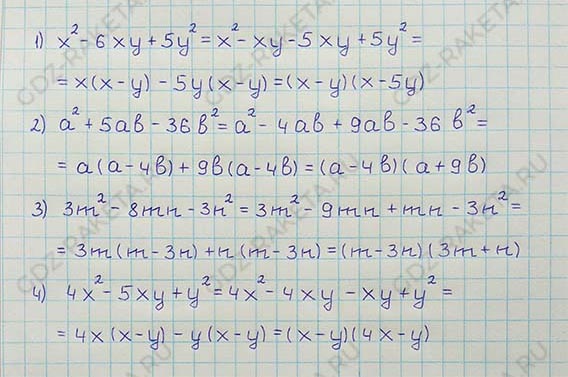 1) x² - 6xy + 5y² = x² - xy - 5xy + 5y² =
= x(x - y) - 5y(x - y) = (x - y)(x - 5y)
2) a² + 5ab - 36b² = a² - 4ab + 9ab - 36b² =
= a(a - 4b) + 9b(a - 4b) = (a - 4b)(a + 9b)
3) 3m² - 8mn - 3n² = 3m² - 9mn + mn - 3n² =
= 3m(m - 3n) + n(m - 3n) = (m - 3n)(3m + n)
4) 4x² - 5xy + y² = 4x² - 4xy - xy + y² =
= 4x(x - y) - y(x - y) = (x - y)(4x - y)
GDZ-RAKETA.RU